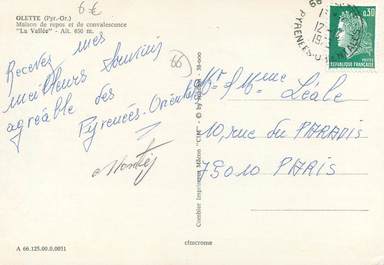 6€
OLETTE (Pyr.-Or.)
Maison de repos et de convalescence
"La Vallée" - Alt. 650 m.
66
Recevez mes
meilleurs Souvenirs
agréable des
Pyrénées-Orientales
Mr et Mme Léale
10, rue du PARADIS
75010 PARIS
0,30
REPUBLIQUE FRANÇAISE
POSTES
PYRENEES-O
Combier Imprimeur Mâcon "CIM"
cimcrome
A 66.125.00.0.0051